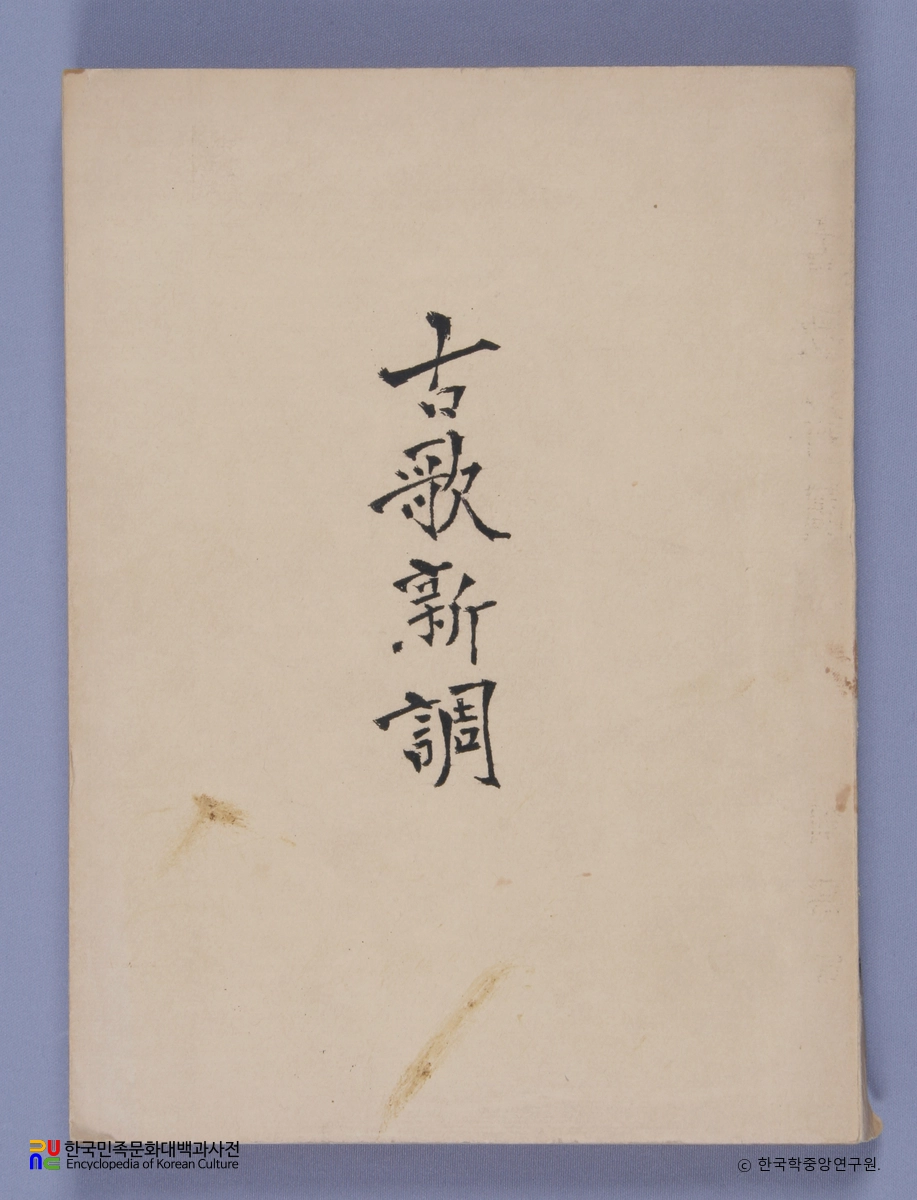 古歌新調
한국민족문화대백과사전
Encyclopedia of Korean Culture
ⓒ 한국학중앙연구원.